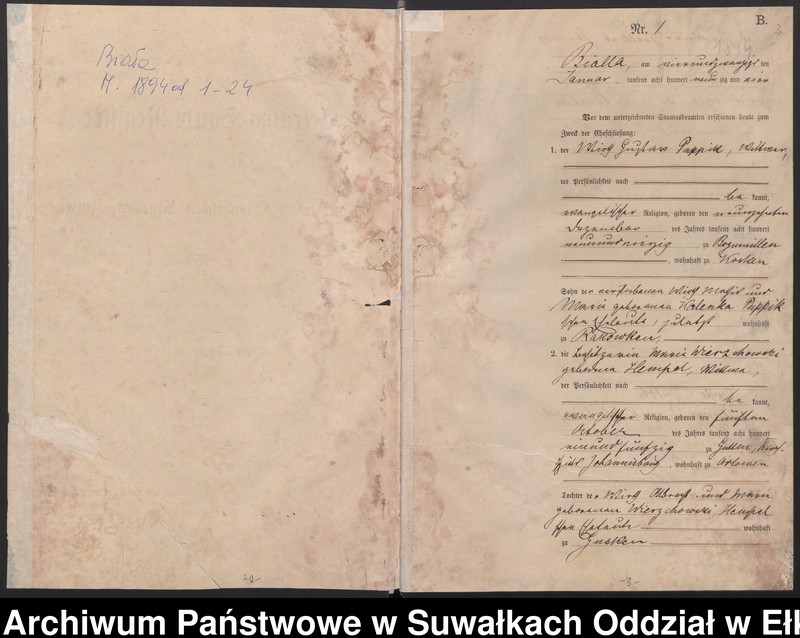 Biała
M. 1894 od 1-24
B.
Nr. 1
Bialla, am vierundzwanzigsten
Januar tausend acht hundert neunzig und vier
Vor dem unterzeichneten Standesbeamten erschienen heute zum
Zweck der Eheschließung:
1. der Wirth Gustav Puppik, Wittwer,
der Persönlichkeit nach
be kannt,
evangelischer Religion, geboren den neunzehnten
Dezember des Jahres tausend acht hundert
neunundvierzig zu
, wohnhaft zu Kosken
Sohn der verstorbenen Wirth und
Marie geborenen Halenka Puppik
schen Eheleute, zuletzt wohnhaft
zu Rakowken
2. die Besitzerin Marie Wierzchowski
geborene Hempel, Wittwe,
der Persönlichkeit nach
be kannt,
evangelischer Religion, geboren den fünften
October des Jahres tausend acht hundert
einundfünfzig zu
Johannisburg, wohnhaft zu Orlowen
Tochter der Wirth Albrecht und Marie
geborenen Wierzchowski Hempel
schen Eheleute wohnhaft
zu Gusken
-2-
-3-
Archiwum Państwowe w Suwałkach Oddział w Ełk